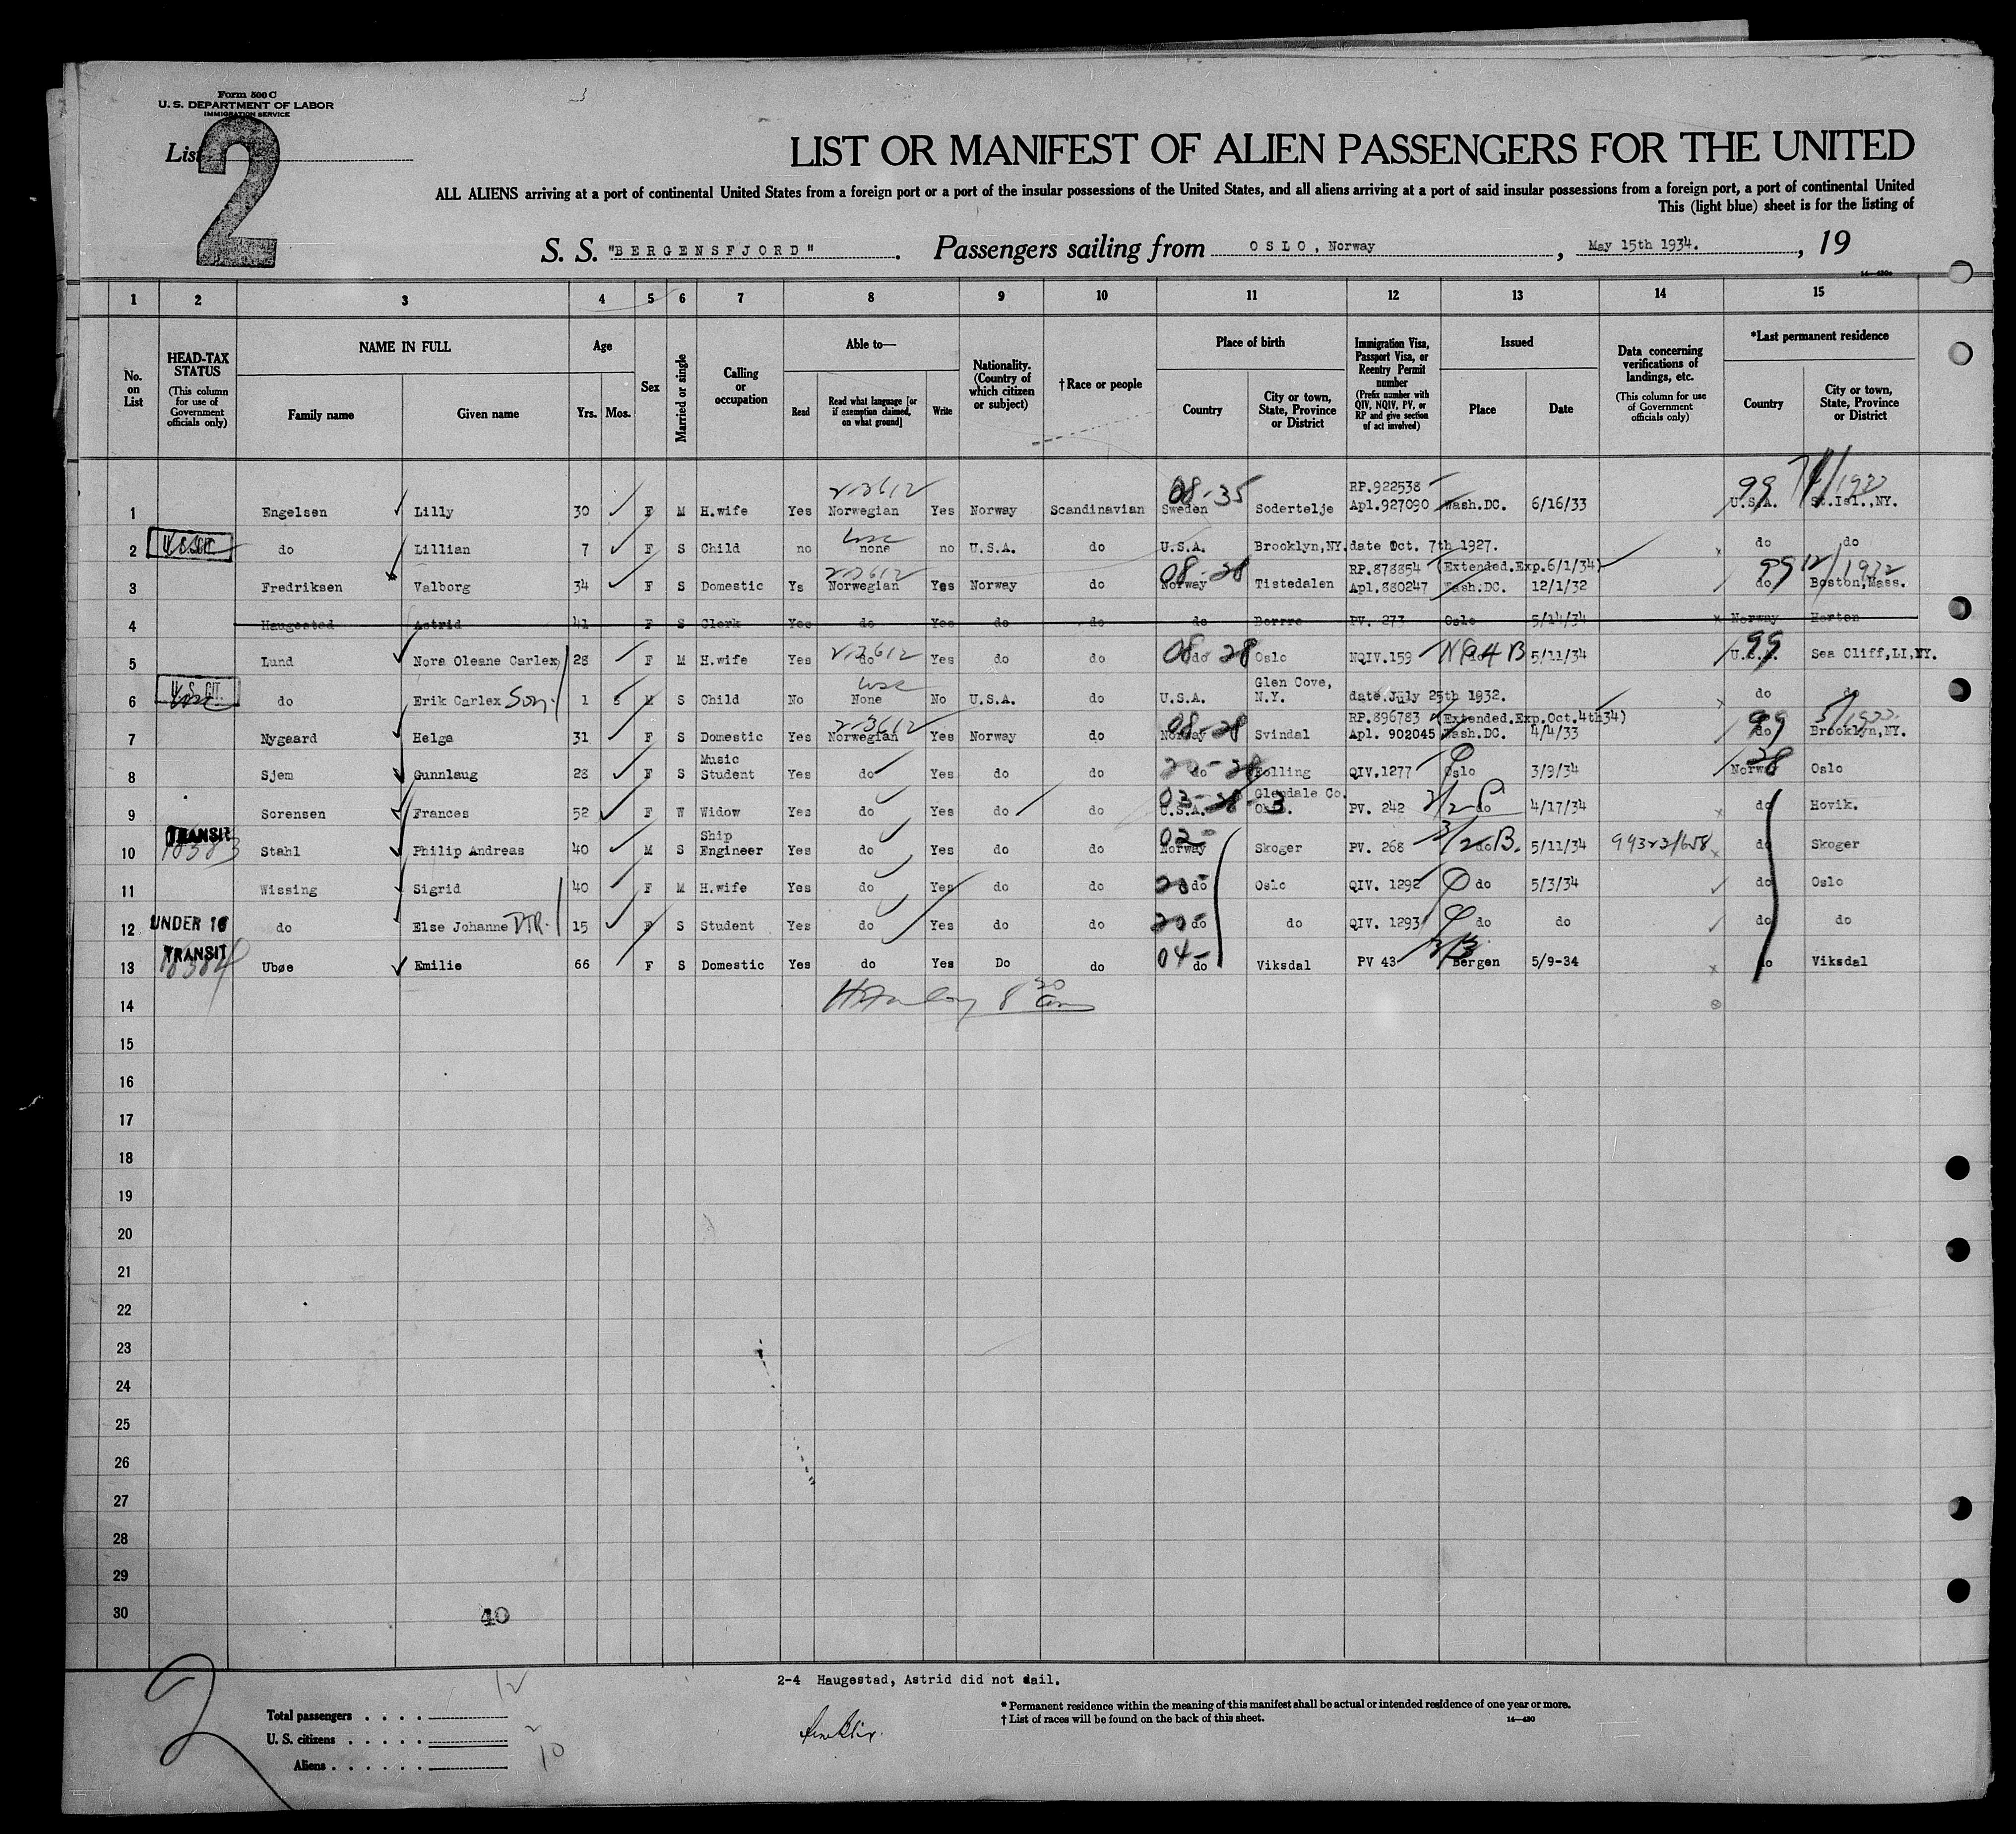 Form 500 C
U. S. DEPARTMENT OF LABOR
IMMIGRATION SERVICE
List 2
LIST OR MANIFEST OF ALIEN PASSENGERS FOR THE UNITED
ALL ALIENS arriving at a port of continental United States from a foreign port or a port of the insular possessions of the United States, and all aliens arriving at a port of said insular possessions from a foreign port, a port of continental United
This (light blue) sheet is for the listing of
S. S. "BERGENSFJORD". Passengers sailing from OSLO, Norway, May 15th 1934., 19
14—430a
1 2 3 4 5 6 7 8 9 10 11 12 13 14 15
No. on List
HEAD-TAX STATUS (This column for use of Government officials only)
NAME IN FULL
Family name
Given name
Age
Yrs. Mos.
Sex
Married or single
Calling or occupation
Able to—
Read
Read what language [or if exemption claimed, on what ground]
Write
Nationality. (Country of which citizen or subject)
†Race or people
Place of birth
Country
City or town, State, Province or District
Immigration Visa, Passport Visa, or Reentry Permit number (Prefix number with QIV, NQIV, PV, or RP and give section of act involved)
Issued
Place
Date
Data concerning verifications of landings, etc. (This column for use of Government officials only)
*Last permanent residence
Country
City or town, State, Province or District
1 Engelsen Lilly 30 F M H.wife Yes 2-3612 Norwegian Yes Norway Scandinavian 08-35 Sweden Sodertelje RP.922538 Apl.927090 Wash.DC. 6/16/33 99 U.S.A. St.Isl.,NY.
2 do Lillian 7 F S Child no usc none no U.S.A. do U.S.A. Brooklyn,NY. date Oct. 7th 1927. do do
3 Fredriksen Valborg 34 F S Domestic Ys 2-3612 Norwegian Yes Norway do 08-28 Norway Tistedalen RP.878854 (Extended.Exp.6/1/34) Apl.880247 Wash.DC. 12/1/32 99 do 12/1932 Boston,Mass.
4 Haugestad Astrid 41 F S Clerk Yes do Yes do do do Borrre PV. 273 Oslo 5/14/34 Norway Horten
5 Lund Nora Oleane Carlex 28 F M H.wife Yes 2-3612 do Yes do do 08 do 28 Oslo NQIV.159 do 5/11/34 99 U.S.A. Sea Cliff,LI,NY.
6 U. S. CIT. do Erik Carlex Son. 1 8 M S Child No usc None No U.S.A. do U.S.A. Glen Cove, N.Y. date.July 25th 1932. do do
7 Nygaard Helga 31 F S Domestic Yes 2-3612 Norwegian Yes Norway do 08-28 Norway Svindal RP.896783 (Extended.Exp.Oct.4th34) Apl. 902045 Wash.DC. 4/4/33 99 do Brooklyn,NY.
8 Sjem Gunnlaug 28 F S Music Student Yes do Yes do do 20-28 do Kolling QIV.1277 Oslo 3/9/34 28 Norway Oslo
9 Sorensen Frances 52 F W Widow Yes do Yes do do U.S.A. Glendale Co. PV. 242 do 4/17/34 do Hovik.
10 TRANSIT 18383 Stahl Philip Andreas 40 M S Ship Engineer Yes do Yes do do 02- Norway Skoger PV. 268 3/2 do B. 5/11/34 99323/658 do Skoger
11 Wissing Sigrid 40 F M H.wife Yes do Yes do do 20- do Oslo QIV. 1292 do 5/3/34 do Oslo
12 UNDER 16 do Else Johanne DTR. 15 F S Student Yes do Yes do do 20- do do QIV. 1293 do do do do
13 TRANSIT 18384 Ubøe Emilie 66 F S Domestic Yes do Yes Do do 04- do Viksdal PV 43 Bergen 5/9-34 do Viksdal
14 8 30 am
15
16
17
18
19
20
21
22
23
24
25
26
27
28
29
30
40
2-4 Haugestad, Astrid did not sail.
12
Total passengers
U. S. citizens 2
Aliens 10
2
* Permanent residence within the meaning of this manifest shall be actual or intended residence of one year or more.
† List of races will be found on the back of this sheet.
14—430